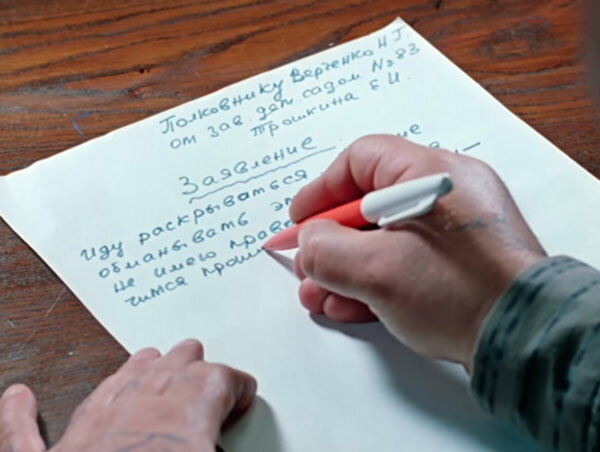 Полковнику Верченко Н.Г.
от зав. дет. садом №83
Трошкина Е.И.
Заявление
Иду раскрываться
обманывать
не имею
чится